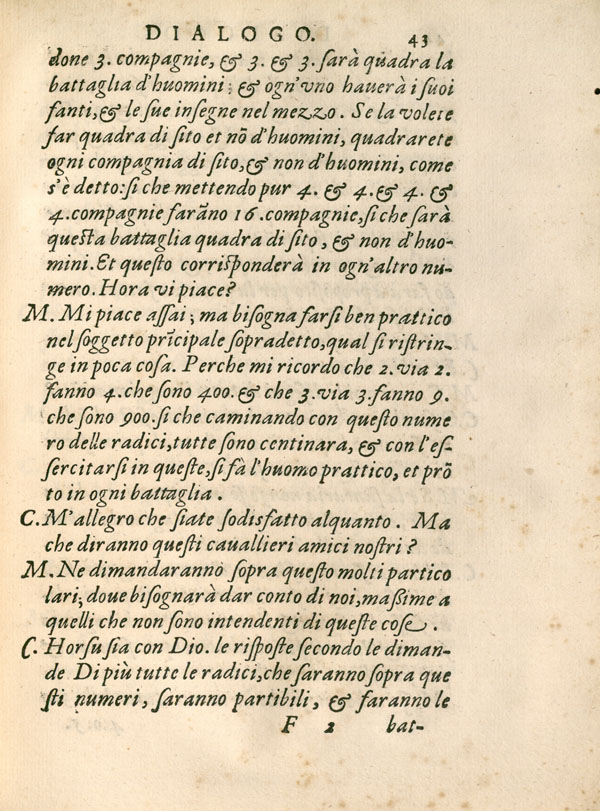 DIALOGO. 43
done 3. compagnie, & 3. & 3. sarà quadra la
battaglia d'huomini; & ogn'vno hauerà i suoi
fanti, & le sue insegne nel mezzo. Se la volete
far quadra di sito et nõ d'huomini, quadrarete
ogni compagnia di sito, & non d'huomini, come
s'è detto: si che mettendo pur 4. & 4. & 4. &
4. compagnie farãno 16. compagnie, si che sarà
questa battaglia quadra di sito, & non d'huo-
mini. Et questo corrisponderà in ogn'altro nu-
mero. Hora vi piace?
M. Mi piace assai; ma bisogna farsi ben prattico
nel soggetto prĩcipale sopradetto, qual si ristrin-
ge in poca cosa. Perche mi ricordo che 2. via 2.
fanno 4. che sono 400. & che 3. via 3. fanno 9.
che sono 900. si che caminando con questo nume
ro delle radici, tutte sono centinara, & con l'es-
sercitarsi in queste, si fà l'huomo prattico, et prõ
to in ogni battaglia.
C. M'allegro che siate sodisfatto alquanto. Ma
che diranno questi cauallieri amici nostri?
M. Ne dimandaranno sopra questo molti partico
lari; doue bisognarà dar conto di noi, maßime a
quelli che non sono intendenti di queste cose.
C. Horsu sia con Dio. le risposte secondo le diman-
de Di più tutte le radici, che saranno sopra que
sti numeri, saranno partibili, & faranno le
F 2 bat-